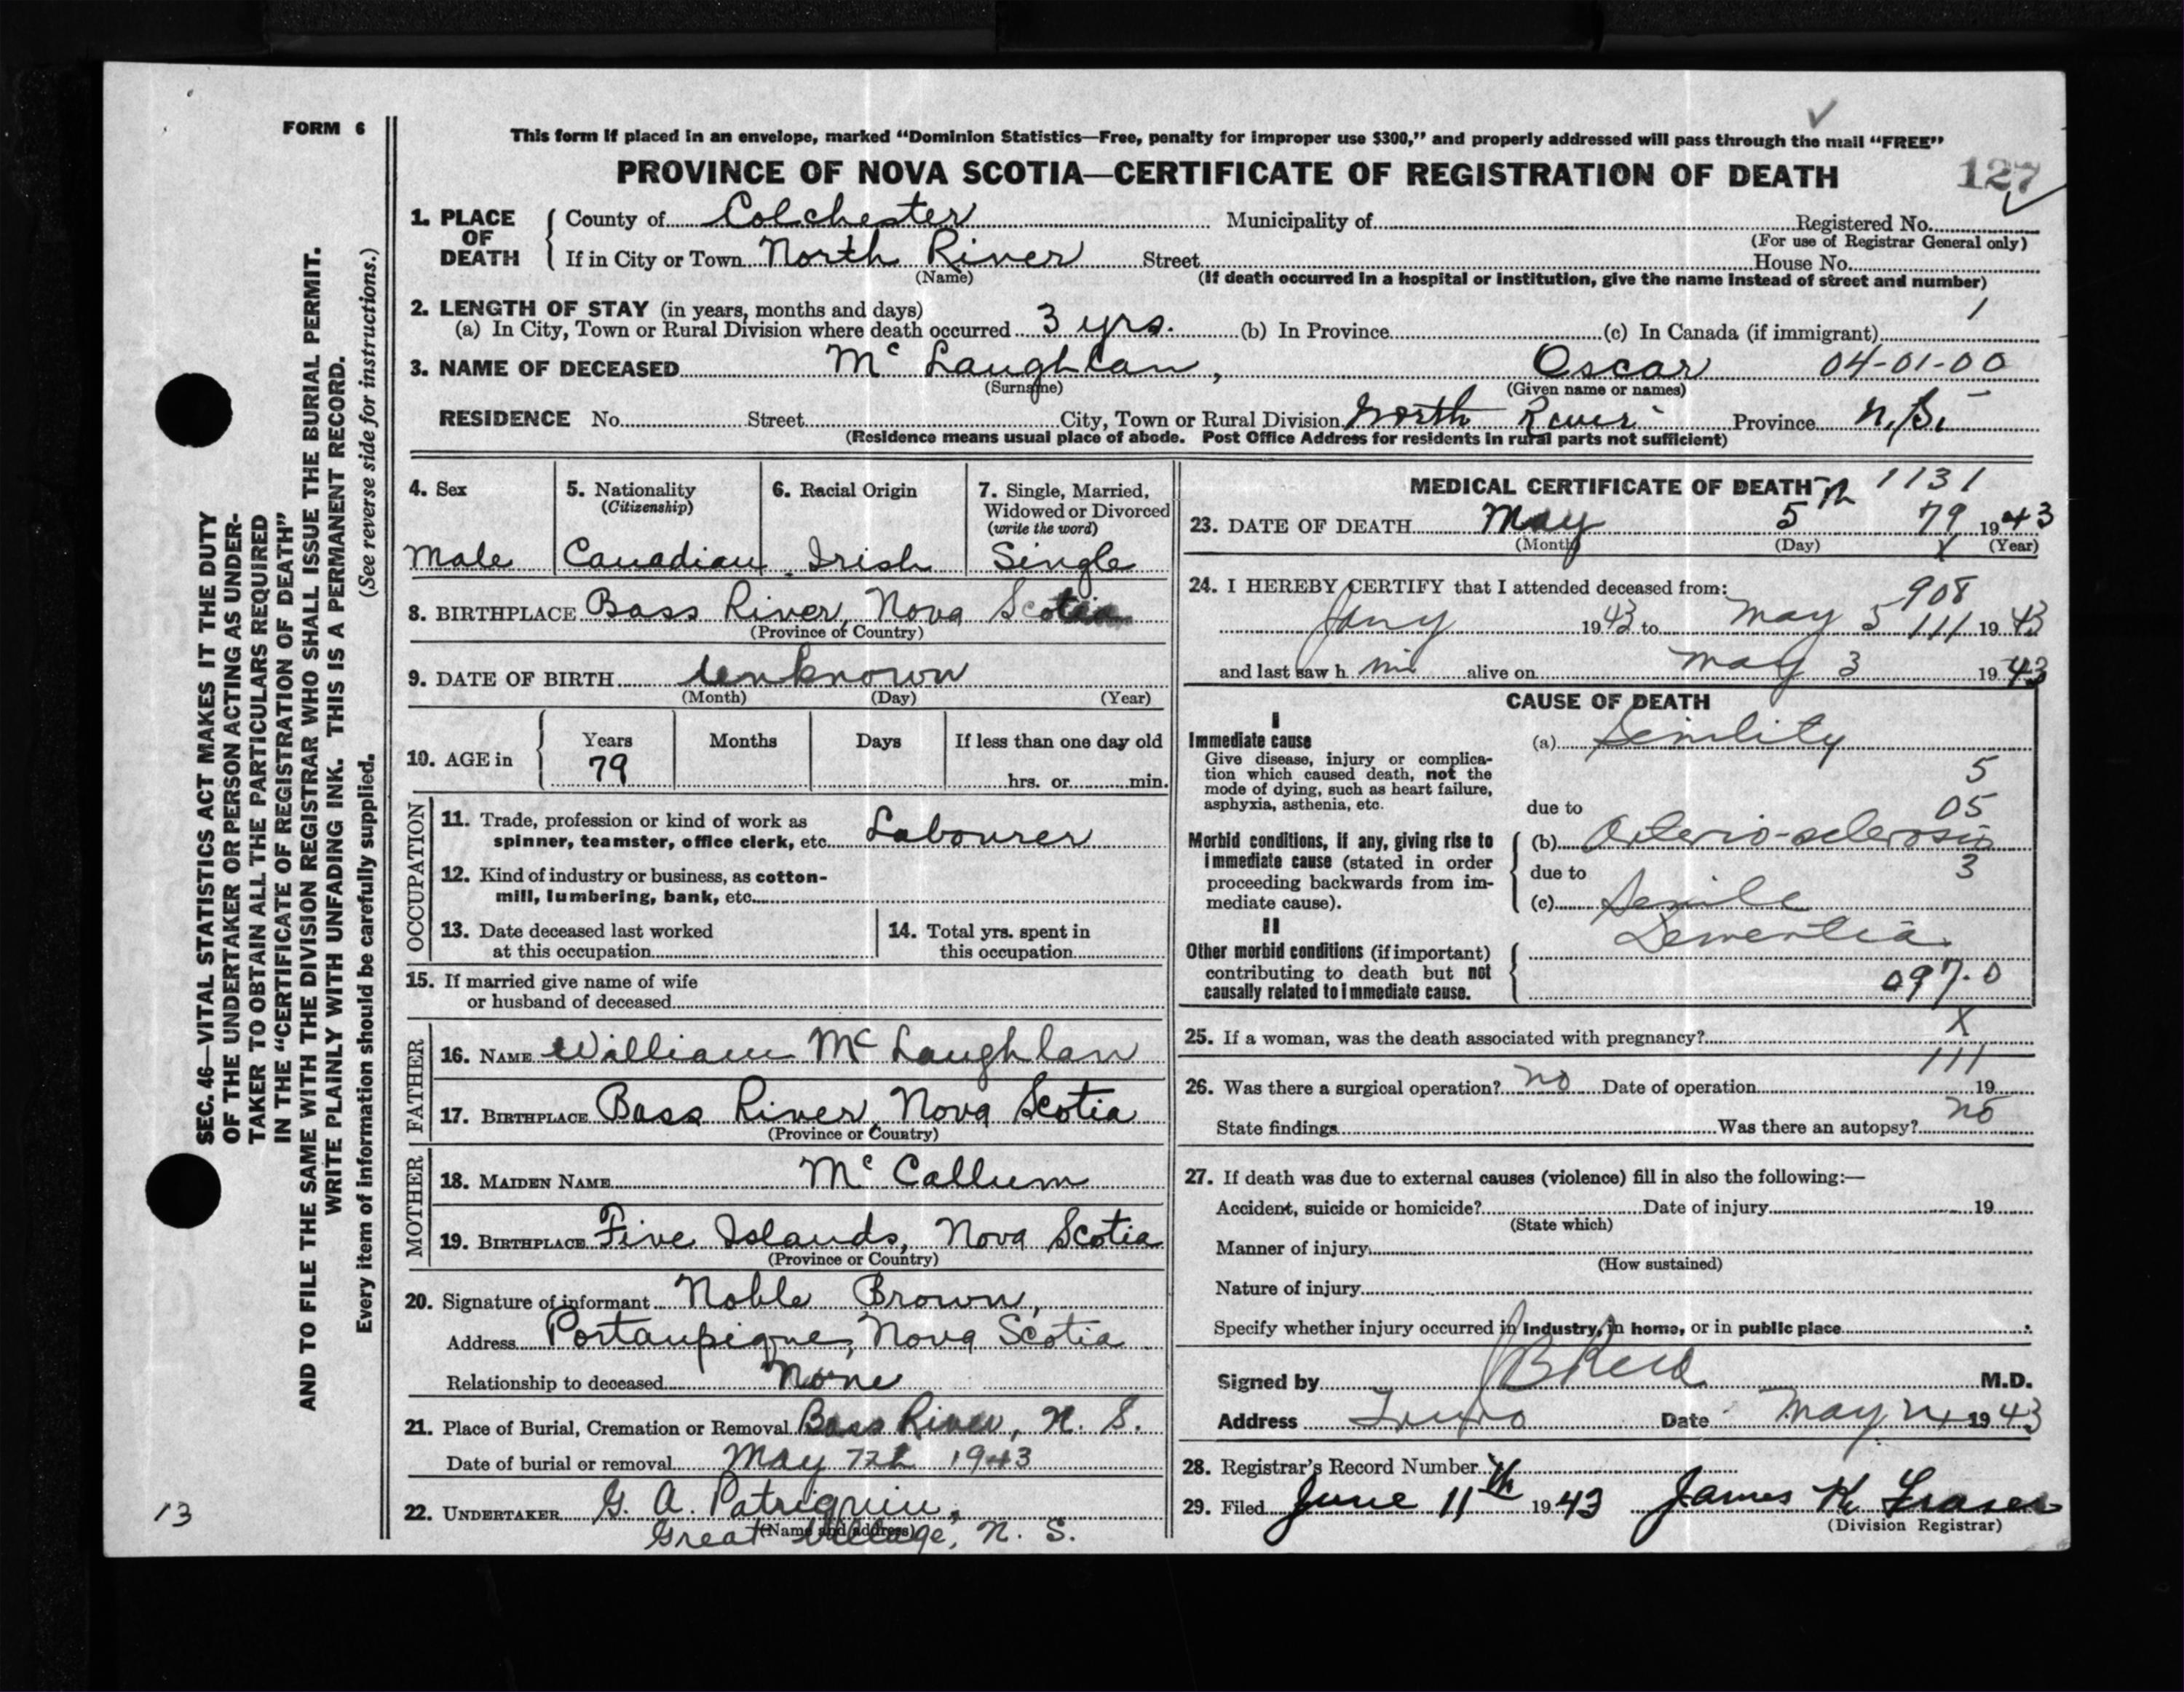 FORM 6
This form if placed in an envelope, marked “Dominion Statistics—Free, penalty for improper use $300,” and properly addressed will pass through the mail “FREE”
PROVINCE OF NOVA SCOTIA—CERTIFICATE OF REGISTRATION OF DEATH 127
1. PLACE OF DEATH
County of Colchester Municipality of Registered No.
(For use of Registrar General only)
If in City or Town North River Street House No.
(Name) (If death occurred in a hospital or institution, give the name instead of street and number)
2. LENGTH OF STAY (in years, months and days) 1
(a) In City, Town or Rural Division where death occurred 3 yrs. (b) In Province (c) In Canada (if immigrant)
3. NAME OF DECEASED Mc Laughlan, Oscar 04-01-00
(Surname) (Given name or names)
RESIDENCE No. Street City, Town or Rural Division North River Province N.S.
(Residence means usual place of abode. Post Office Address for residents in rural parts not sufficient)
4. Sex
Male
5. Nationality
(Citizenship)
Canadian
6. Racial Origin
Irish
7. Single, Married,
Widowed or Divorced
(write the word)
Single
8. BIRTHPLACE Bass River, Nova Scotia
(Province or Country)
9. DATE OF BIRTH unknown
(Month) (Day) (Year)
10. AGE in
Years Months Days If less than one day old
79
hrs. or min.
OCCUPATION
11. Trade, profession or kind of work as
spinner, teamster, office clerk, etc. Labourer
12. Kind of industry or business, as cotton-
mill, lumbering, bank, etc.
13. Date deceased last worked
at this occupation
14. Total yrs. spent in
this occupation
15. If married give name of wife
or husband of deceased
FATHER
16. NAME William Mc Laughlan
17. BIRTHPLACE Bass River, Nova Scotia
(Province or Country)
MOTHER
18. MAIDEN NAME Mc Callum
19. BIRTHPLACE Five Islands, Nova Scotia
(Province or Country)
20. Signature of informant Noble Brown,
Address Portaupique, Nova Scotia
Relationship to deceased None
21. Place of Burial, Cremation or Removal Bass River, N. S.
Date of burial or removal May 7th 1943
22. UNDERTAKER G. A. Patriquin,
(Name and address)
Great Village, N. S.
MEDICAL CERTIFICATE OF DEATH 1131
23. DATE OF DEATH May 5th 79 1943
(Month) (Day) X (Year)
24. I HEREBY CERTIFY that I attended deceased from:
908
Jany 1943 to May 5 111 1943
and last saw him alive on May 3 1943
CAUSE OF DEATH
I
Immediate cause
Give disease, injury or complica-
tion which caused death, not the
mode of dying, such as heart failure,
asphyxia, asthenia, etc.
(a) Senility
5
05
due to
Morbid conditions, if any, giving rise to
immediate cause (stated in order
proceeding backwards from im-
mediate cause).
(b) Arterio-sclerosis
due to 3
(c) Senile
Dementia
II
Other morbid conditions (if important)
contributing to death but not
causally related to immediate cause.
097.0
25. If a woman, was the death associated with pregnancy? X
111
26. Was there a surgical operation? no Date of operation 19
State findings Was there an autopsy? no
27. If death was due to external causes (violence) fill in also the following:—
Accident, suicide or homicide? Date of injury 19
(State which)
Manner of injury
(How sustained)
Nature of injury
Specify whether injury occurred in industry, in home, or in public place
Signed by J B Reid M.D.
Address Truro Date May 1943
28. Registrar's Record Number
29. Filed June 11th 1943 James K. Fraser
(Division Registrar)
SEC. 46—VITAL STATISTICS ACT MAKES IT THE DUTY
OF THE UNDERTAKER OR PERSON ACTING AS UNDER-
TAKER TO OBTAIN ALL THE PARTICULARS REQUIRED
IN THE “CERTIFICATE OF REGISTRATION OF DEATH”
AND TO FILE THE SAME WITH THE DIVISION REGISTRAR WHO SHALL ISSUE THE BURIAL PERMIT.
WRITE PLAINLY WITH UNFADING INK. THIS IS A PERMANENT RECORD.
Every item of information should be carefully supplied. (See reverse side for instructions.)
13